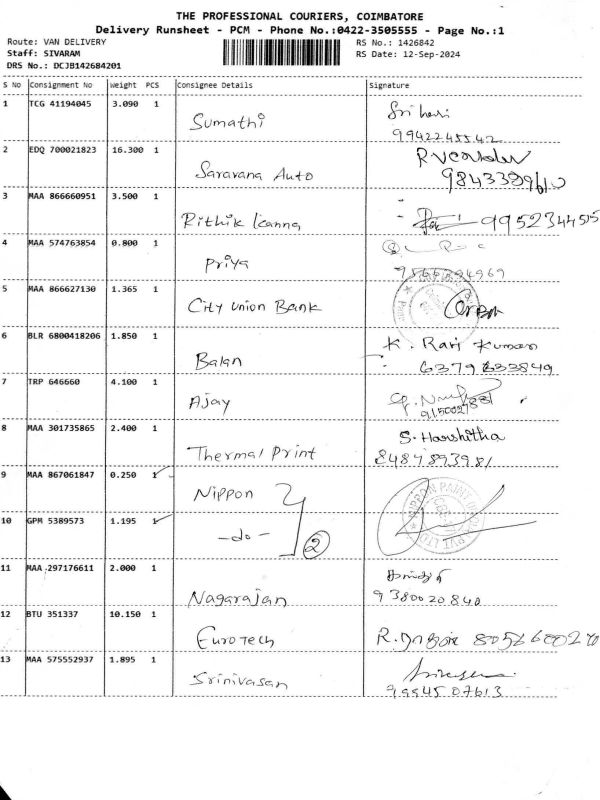 THE PROFESSIONAL COURIERS, COIMBATORE
Delivery Runsheet - PCM - Phone No.:0422-3505555 - Page No.:1
Route: VAN DELIVERY
Staff: SIVARAM
DRS No.: DCJB142684201
RS No.: 1426842
RS Date: 12-Sep-2024
S No Consignment No Weight PCS Consignee Details Signature
1 TCG 41194045 3.090 1 Sumathi Sri hari
9942245542
2 EDQ 700021823 16.300 1 Saravana Auto
3 MAA 866660951 3.500 1 Rithik Kanna 9952344515
4 MAA 574763854 0.800 1 Priya
5 MAA 866627130 1.365 1 City Union Bank
6 BLR 6800418206 1.850 1 Balan K. Ravi Kumar
6379633849
7 TRP 646660 4.100 1 Ajay
8 MAA 301735865 2.400 1 Thermal Print S. Harshitha
8489893981
9 MAA 867061847 0.250 1 Nippon
10 GPM 5389573 1.195 1 -do- 2
11 MAA 297176611 2.000 1 Nagarajan
9380020840
12 BTU 351337 10.150 1 Eurotech
13 MAA 575552937 1.895 1 Srinivasan
9994507613